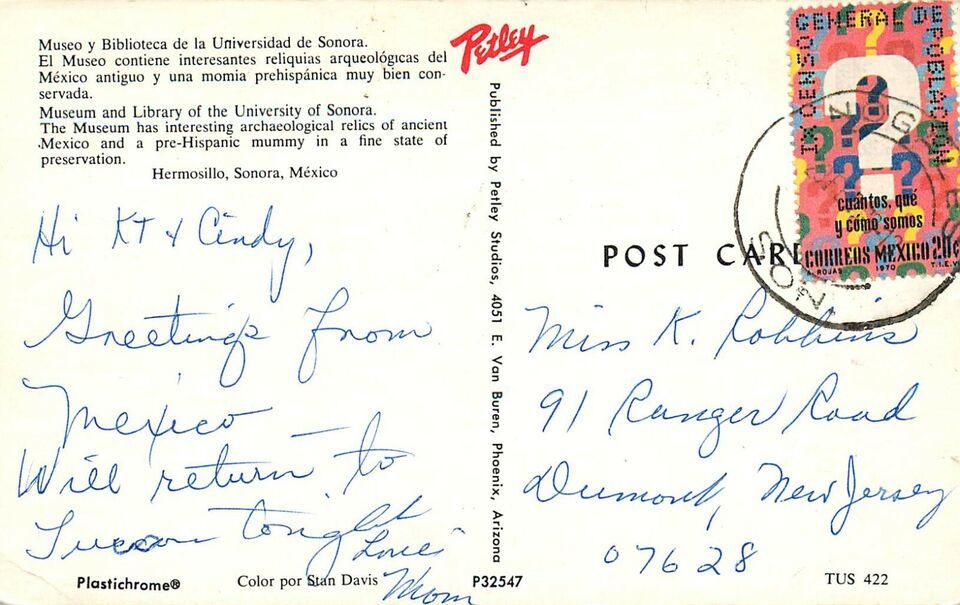 Museo y Biblioteca de la Universidad de Sonora.
El Museo contiene interesantes reliquias arqueológicas del
México antiguo y una momia prehispánica muy bien con-
servada.
Museum and Library of the University of Sonora.
The Museum has interesting archaeological relics of ancient
Mexico and a pre-Hispanic mummy in a fine state of
preservation.
Hermosillo, Sonora, México
Hi KT & Cindy,
Greetings from
Mexico —
Will return to
Tucson tonight
Love
Mom
Plastichrome®
Color por Stan Davis
P32547
Petley
Published by Petley Studios, 4051 E. Van Buren, Phoenix, Arizona
POST CARD
IX CENSO GENERAL DE POBLACION
cuántos, qué
y cómo somos
CORREOS MEXICO 20¢
ROJAS 1970 T.I.E.V.
NOGALES
SON
Miss K. Robbins
91 Ranger Road
Dumont, New Jersey
07628
TUS 422